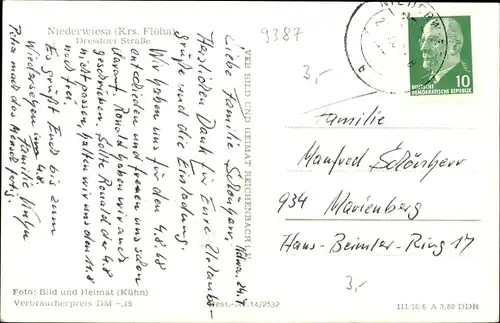 Niederwiesa (Krs. Flöha)
Dresdner Straße
9387
NIEDERWI
DEUTSCHE
DEMOKRATISCHE REPUBLIK
10
3,-
Liebe Familie Schönherr,
Herzlichen Dank für Eure Urlaubs-
grüße und die Einladung.
Wir haben uns für den 4.8.68
entschieden und freuen uns schon
darauf. Ronald haben wir auch
geschrieben. Sollte Ronald der 4.8
nicht passen, halten wir uns den 11.8
noch frei.
Es grüßt Euch bis zum
Wiedersehen am 4.8.
Familie
Petra macht das Abend fertig.
VEB BILD UND HEIMAT REICHENBACH I. V.
Familie
Manfred Schönherr
934 Marienberg
Hans-Beimler-Ring 17
3,-
Foto: Bild und Heimat (Kühn)
Verbraucherpreis DM -,15
Best.-Nr. 14/2532
III/18/6 A 3/60 DDR